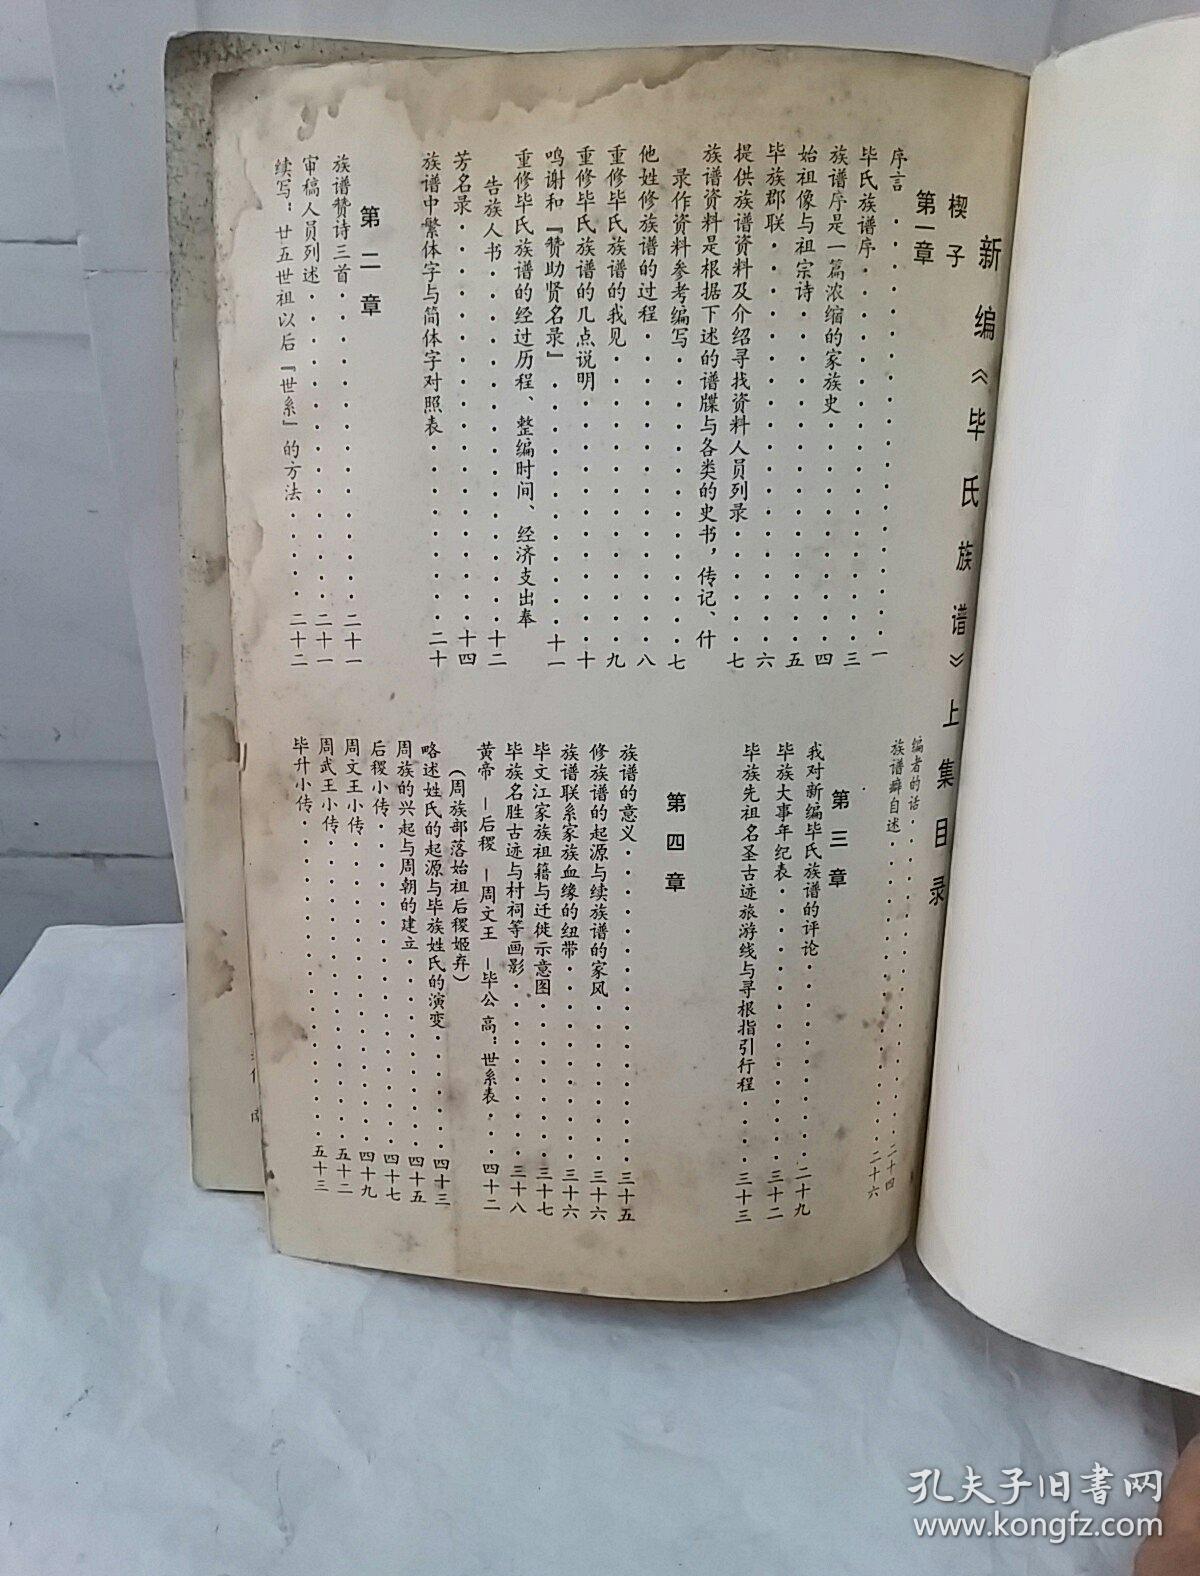 新编《毕氏族谱》上集目录
楔子
第一章
序言・・・一
毕氏族谱序・・・三
族谱序是一篇浓缩的家族史・・・四
始祖像与祖宗诗・・・五
毕族郡联・・・六
提供族谱资料及介绍寻找资料人员列录・・・七
族谱资料是根据下述的谱牒与各类的史书，传记、什
录作资料参考编写・・・七
他姓修族谱的过程・・・八
重修毕氏族谱的我见・・・九
重修毕氏族谱的几点说明・・・十
鸣谢和『赞助贤名录』・・・十一
重修毕氏族谱的经过历程、整编时间、经济支出奉
告族人书・・・十二
芳名录・・・十四
族谱中繁体字与简体字对照表・・・二十
第二章
族谱赞诗三首・・・二十一
审稿人员列述・・・二十一
续写：廿五世祖以后『世系』的方法・・・二十二
编者的话・・・二十四
族谱癖自述・・・二十六
第三章
我对新编毕氏族谱的评论・・・二十九
毕族大事年纪表・・・三十二
毕族先祖名圣古迹旅游线与寻根指引行程・・・三十三
第四章
族谱的意义・・・三十五
修族谱的起源与续族谱的家风・・・三十六
族谱联系家族血缘的纽带・・・三十六
毕文江家族祖籍与迁徙示意图・・・三十七
毕族名胜古迹与村祠等画影・・・三十八
黄帝－后稷－周文王－毕公高：世系表・・・四十二
（周族部落始祖后稷姬弃）
略述姓氏的起源与毕族姓氏的演变・・・四十三
周族的兴起与周朝的建立・・・四十五
后稷小传・・・四十七
周文王小传・・・四十九
周武王小传・・・五十二
毕升小传・・・五十三
孔夫子旧书网
www.kongfz.com